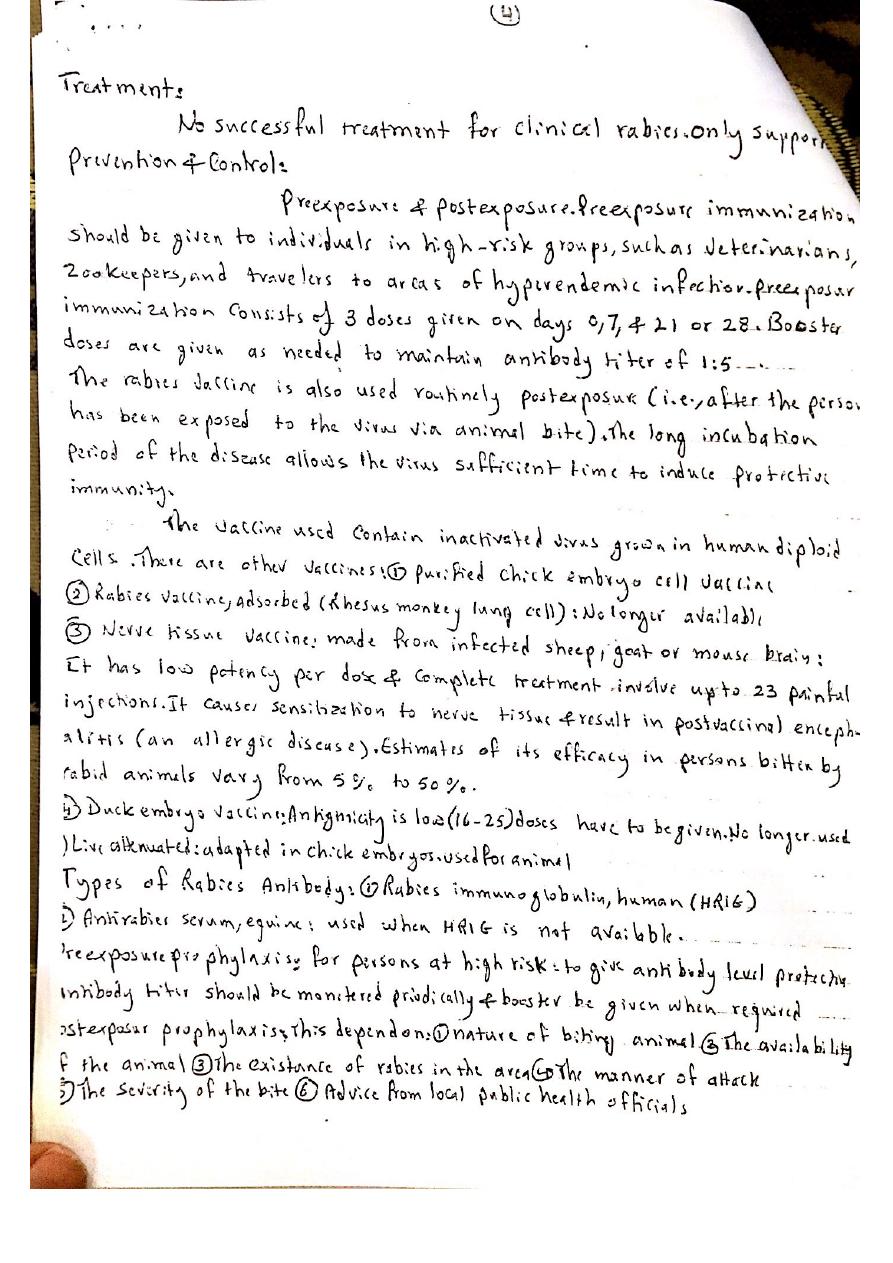 (4)
Treatment:
No successful treatment for clinical rabies. Only support
Prevention & Control:
Preexposure & postexposure. Preexposure immunization
should be given to individuals in high-risk groups, such as Veterinarians,
Zookeepers, and travelers to areas of hyperendemic infection. preexposur
immunization Consists of 3 doses given on days 0, 7, & 21 or 28. Booster
doses are given as needed to maintain antibody titer of 1:5----
The rabies Vaccine is also used routinely postexposure (i.e., after the person
has been exposed to the virus via animal bite). The long incubation
Period of the disease allows the virus sufficient time to induce protective
immunity.
The Vaccine used Contain inactivated virus grown in human diploid
Cells. There are other Vaccines: ① purified Chick embryo cell Vaccine
② Rabies vaccine, adsorbed (Rhesus monkey lung cell): No longer available
③ Nerve tissue vaccine: made from infected sheep, goat or mouse brain:
It has low potency per dose & Complete treatment involve up to 23 painful
injections. It causes sensitization to nerve tissue & result in postvaccinal enceph-
alitis (an allergic disease). Estimates of its efficacy in persons bitten by
rabid animals vary from 5% to 50%.
④ Duck embryo Vaccine: Antignicity is low (16-25) doses have to be given. No longer used
) Live attenuated: adapted in chick embryos. used for animal
Types of Rabies Antibody: ① Rabies immunoglobulin, human (HRIG)
② Antirabies serum, equine: used when HRIG is not available.
reexposure prophylaxis: for persons at high risk: to give antibody level protective
antibody titer should be monitered priodically & booster be given when required
ostexposur prophylaxis: This depend on: ① nature of biting animal ② The availability
f the animal ③ The existance of rabies in the area ④ The manner of attack
5) The Severity of the bite ⑥ Advice from local public health officials